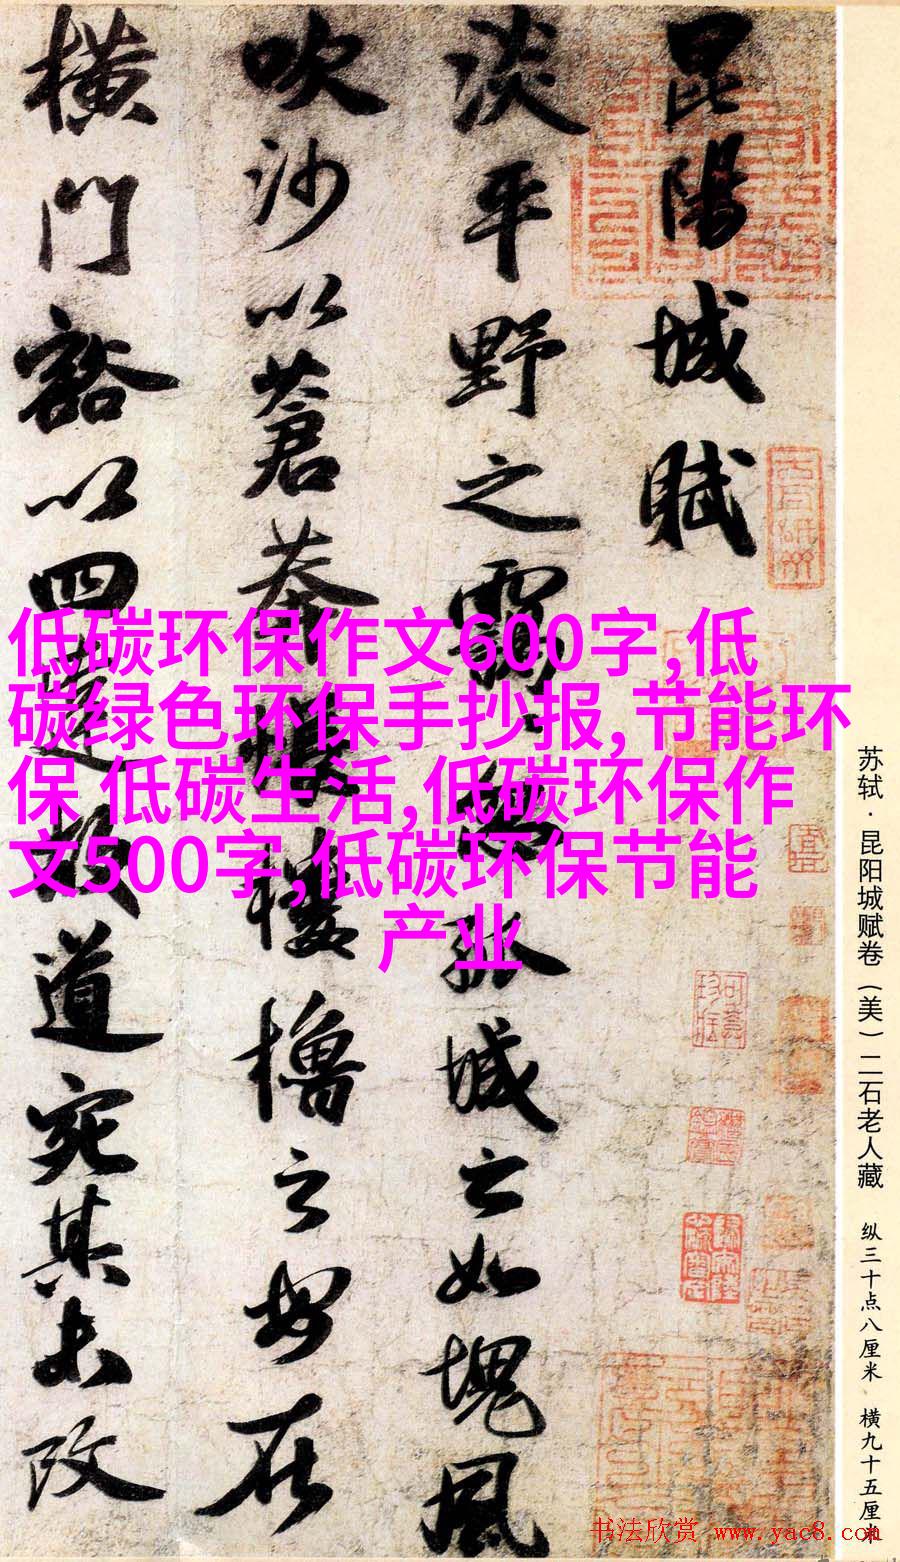 昆陽城賦
淡平野之靄靄忽孤城之如塊風
吹沙以蒼莽悵樓櫓之安在
橫門豁以四達故道宛其未改
低碳环保作文600字,低
碳绿色环保手抄报,节能环
保 低碳生活,低碳环保作
文500字,低碳环保节能
产业
苏轼·昆阳城赋卷（美）二石老人藏 纵三十点八厘米 横九十五厘米
书法欣赏 www.yac8.com